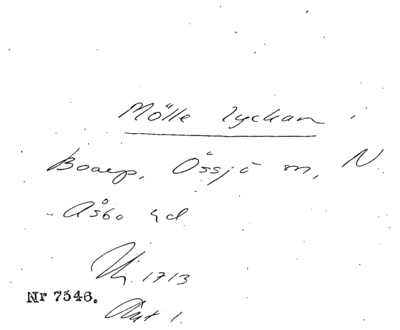 Mölle lyckan i
Boarp, Össjö sn, N
Åsbo hd
1713
Nr 7546.
Akt 1.